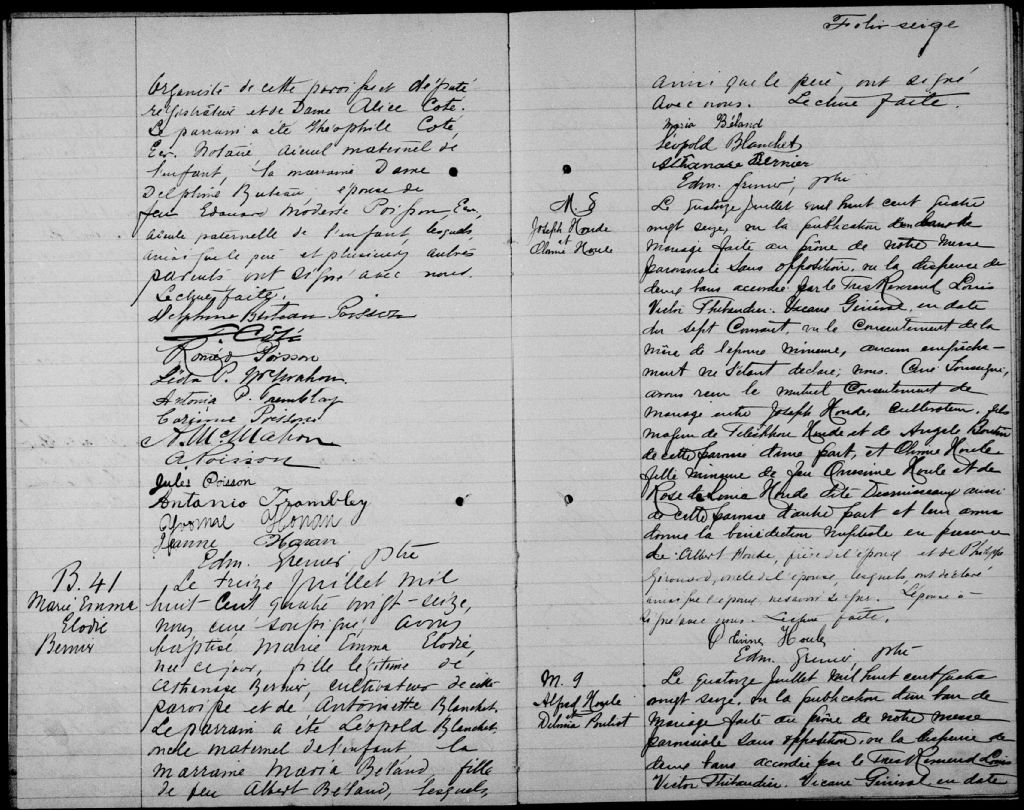 organiste de cette paroisse et député
régistrateur et de Dame Alice Coté.
Le parrain a été Théophile Coté,
Ecr. Notaire aieul maternel de
l'enfant, la marraine Dame
Delphine Buteau épouse de
feu Edouard Modeste Poisson, Ecr,
aieule paternelle de l'enfant, lesquels
ainsi que le père et plusieurs autres
parents ont signé avec nous.
Lecture faite.
Delphine Buteau Poisson
T. Coté
Roméo Poisson
P. McMahon
Antonia P. Tremblay
Poisson
A. McMahon
A. Poisson
Jules Poisson
Antonio Trambley
Yvonne Honan
Jeanne Honan
Edm. Grenier, ptre
B. 41
Marie Emma
Elodie
Bernier
Le treize Juillet mil
huit-cent quatre vingt-seize,
nous curé soussigné avons
baptisé Marie Emma Elodie,
née ce jour, fille légitime de
Athanase Bernier, cultivateur de cette
paroisse et de Antoinette Blanchet,
Le parrain a été Léopold Blanchet,
oncle maternel de l'enfant la
marraine Maria Béland, fille
de feu Albert Beland, lesquels,
Folio seize
ainsi que le père, ont signé
avec nous. Lecture faite.
Maria Béland
Léopold Blanchet
Athanase Bernier
Edm. Grenier, ptre
M. 8
Joseph Houde
et
Houle
Le quatorze Juillet mil huit cent quatre
vingt seize, vu la publication d'un banc de
mariage faite au prône de notre messe
paroissiale sans opposition, vu la dispense de
deux bans accordée par le Très Révérend Louis
Victor Thibaudier. Vicaire Général, en date
du sept Courant, vu le Consentement de la
mère de l'épouse mineure, aucun empêche-
ment ne s'étant déclaré; nous. Curé Soussigné,
avons reçu le mutuel Consentement de
mariage entre Joseph Houde, Cultivateur, fils
majeur de Houde et de Angèle
de cette paroisse d'une part, et Houle
fille mineure de feu Onésime Houle et de
Rose de Lima Houde dite Desruisseaux aussi
de cette paroisse d'autre part et leur avons
donné la bénédiction nuptiale en présence
de Albert Houde, frère de l'époux et de Philippe
Girouard, oncle de l'épouse, lesquels, ont déclaré
ainsi que l'époux ne savoir signer. L'épouse a
signé avec nous. Lecture faite.
Houle
Edm. Grenier ptre
M. 9
Alfred Houle
et
Delvina Pouliot
Le quatorze Juillet mil huit cent quatre
vingt seize, vu la publication d'un ban de
mariage faite au prône de notre messe
paroissiale sans opposition, vu la dispense de
deux bans accordée par le Très Révérend Louis
Victor Thibaudier. Vicaire Général en date